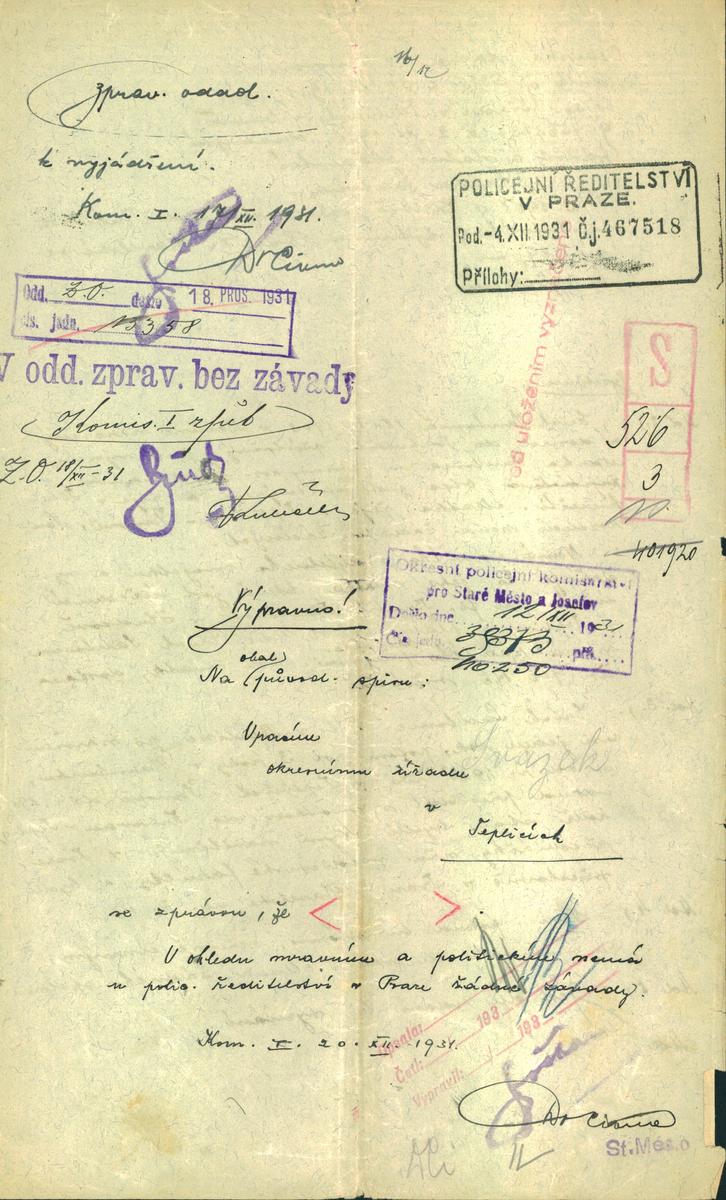 16/12
Zprav. odděl.
k vyjádření.
Kom. I. 17/XII. 1931.
POLICEJNÍ ŘEDITELSTVÍ
V PRAZE.
Pod. -4.XII.1931 Č.j. 467518
Přílohy:
Odd. Z.O. došlo 18. PROS. 1931
čís. jedn. 15358
V odd. zprav. bez závady
Komis. I zpět
Z.O. 18/XII-31
S
526
3
401920
Okresní policejní komisařství
pro Staré Město a Josefov
Došlo dne 12/XII 193
Čís. jedn. příl.
40.250
Výpravno!
obal
Na původ. spisu:
Vrácíme
okresnímu úřadu
Svazek
v
Teplicích
se zprávou, že < >.
V ohledu mravním a politickém nemá
u polic. ředitelství v Praze žádné závady.
Kom. I. 20. XII. 1931.
193
Četl: 193
Vypravil:
St. Město